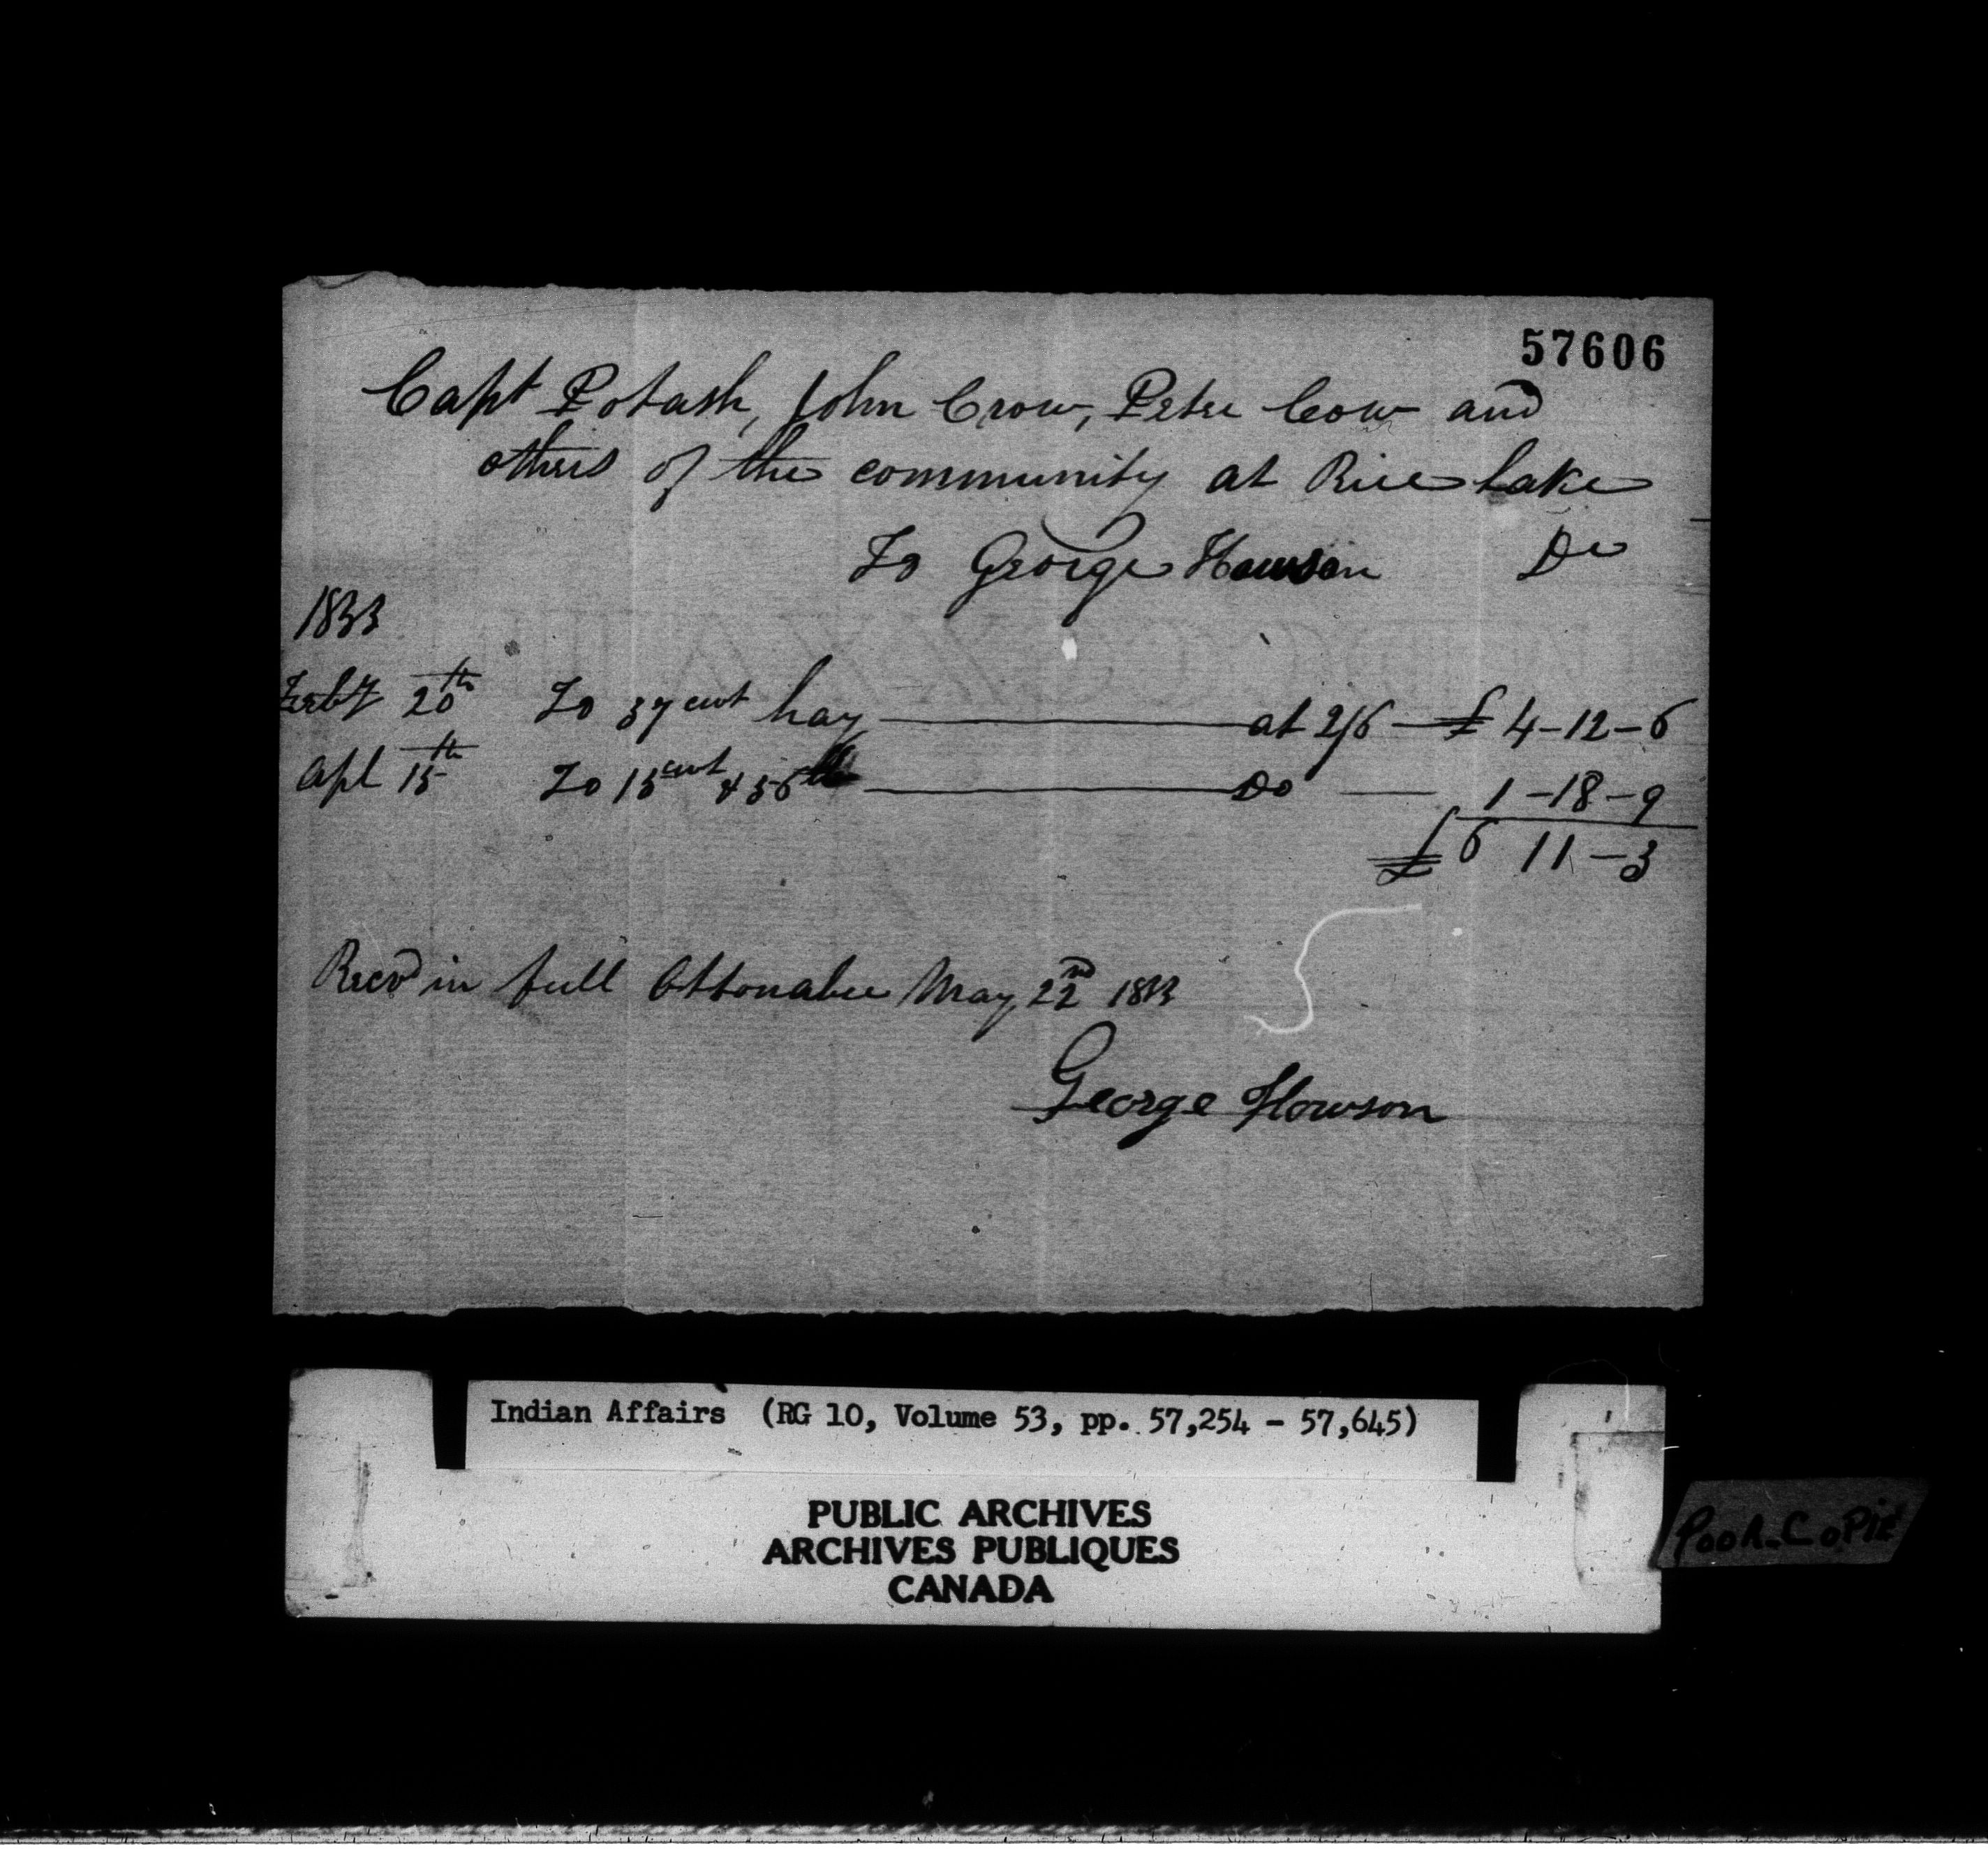 57606
Capt Potash, John Crow, Peter Cow and
others of the community at Rice Lake
To George Howson Dr
1833
Feby 20th To 37 cwt hay at 2/6 £ 4-12-6
Apl 15th To 15 cwt & 56 lb Do 1-18-9
£ 6 11-3
Recd in full Ottonabee May 22nd 1833
George Howson
Indian Affairs (RG 10, Volume 53, pp. 57,254 - 57,645)
PUBLIC ARCHIVES
ARCHIVES PUBLIQUES
CANADA
POOR COPIE